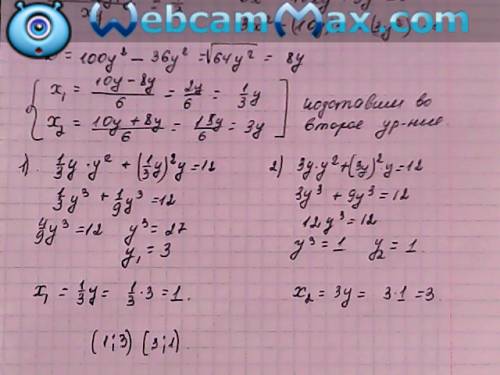 WebcamMax.com
= 100y² − 36y² = √64y² = 8y
x₁ = (10y − 8y)/6 = 2y/6 = 1/3 y
x₂ = (10y + 8y)/6 = 18y/6 = 3y
подставим во
второе ур-ние.
1) 1/3 y · y² + (1/3 y)² y = 12
1/3 y³ + 1/9 y³ = 12
4/9 y³ = 12 y³ = 27
y₁ = 3
x₁ = 1/3 y = 1/3 · 3 = 1.
2) 3y · y² + (3y)² y = 12
3y³ + 9y³ = 12
12y³ = 12
y³ = 1 y₂ = 1.
x₂ = 3y = 3·1 = 3.
(1;3) (3;1).